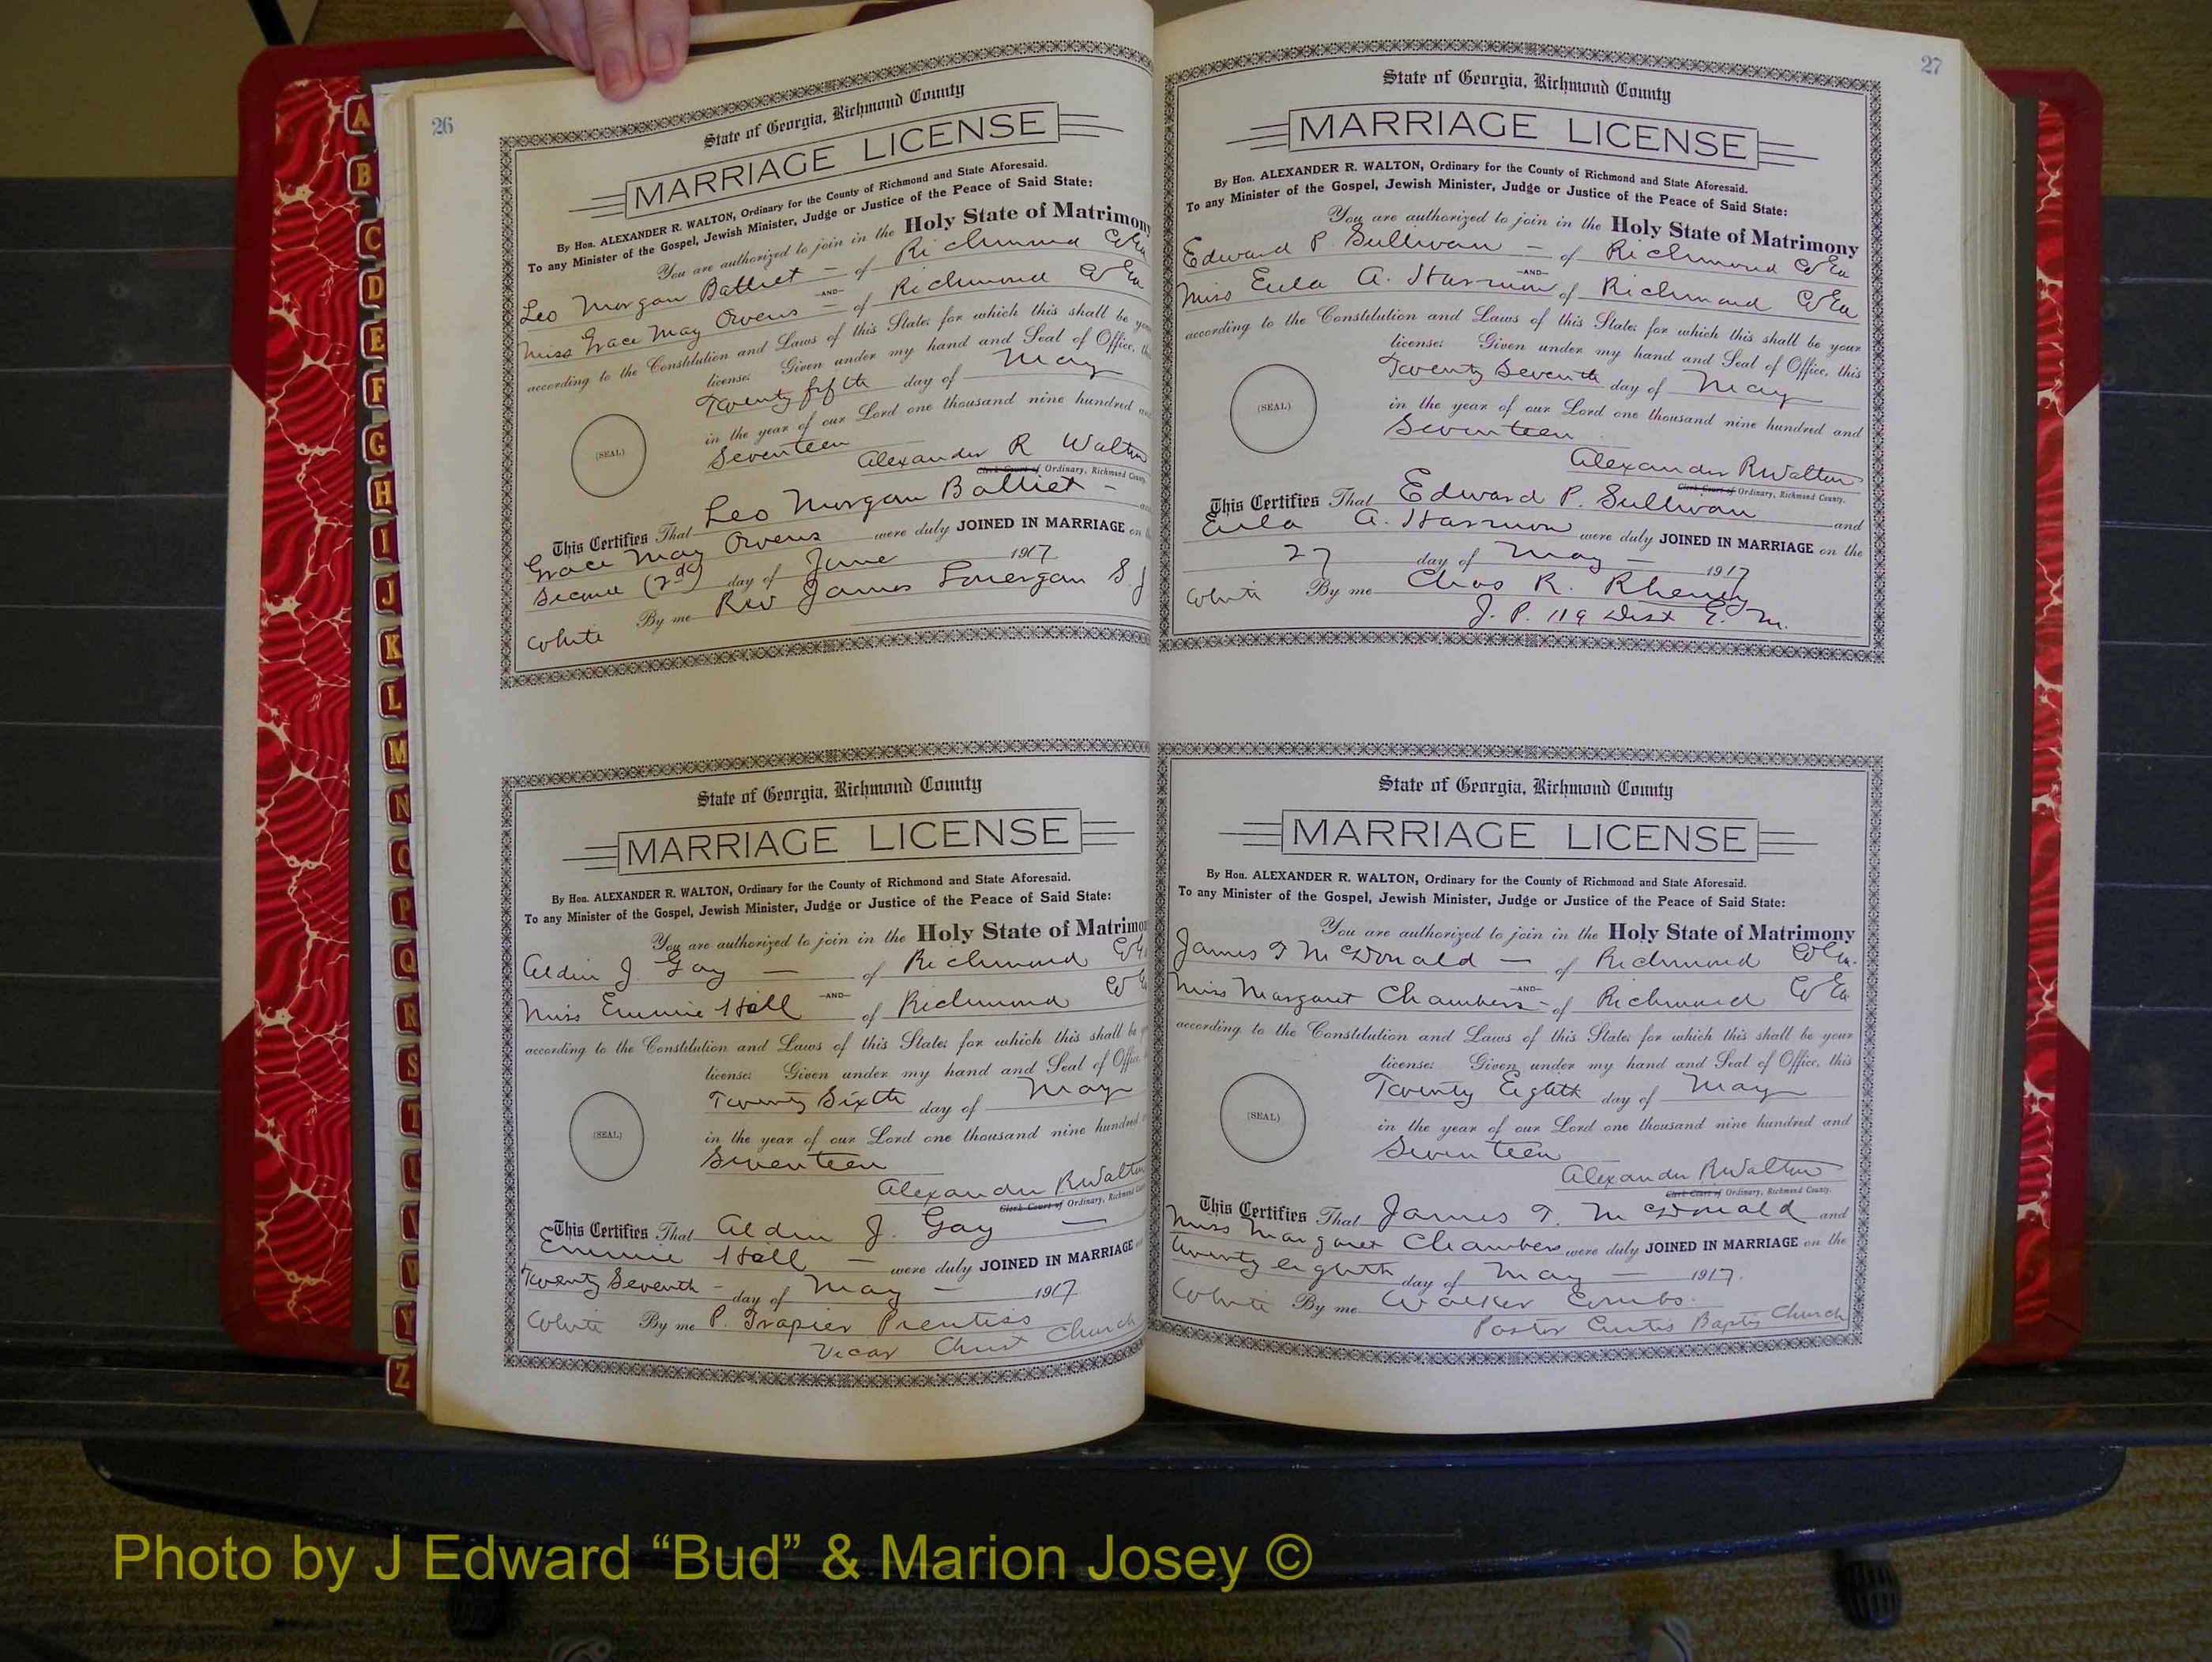 26
State of Georgia, Richmond County
MARRIAGE LICENSE
By Hon. ALEXANDER R. WALTON, Ordinary for the County of Richmond and State Aforesaid.
To any Minister of the Gospel, Jewish Minister, Judge or Justice of the Peace of Said State:
You are authorized to join in the Holy State of Matrimony
Leo Morgan Balliet - of Richmond Co Ga
-AND-
Miss Grace May Owens - of Richmond Co Ga
according to the Constitution and Laws of this State; for which this shall be
license: Given under my hand and Seal of Office,
Twenty fifth day of May
in the year of our Lord one thousand nine hundred
Seventeen
(SEAL)
Alexander R Walton
Clerk Court of Ordinary, Richmond County.
This Certifies That Leo Morgan Balliet -
Grace May Owens were duly JOINED IN MARRIAGE on
Second (2nd) day of June 1917
White By me Rev James Lonergan S.J
State of Georgia, Richmond County
MARRIAGE LICENSE
By Hon. ALEXANDER R. WALTON, Ordinary for the County of Richmond and State Aforesaid.
To any Minister of the Gospel, Jewish Minister, Judge or Justice of the Peace of Said State:
You are authorized to join in the Holy State of Matrimo
Aldin J. Gay - of Richmond Co
-AND-
Miss Emmie Hall of Richmond Co
according to the Constitution and Laws of this State; for which this shall be
license: Given under my hand and Seal of Office,
Twenty Sixth day of May
in the year of our Lord one thousand nine hundred
Seventeen
(SEAL)
Alexander R Walton
Clerk Court of Ordinary, Richmond
This Certifies That Aldin J. Gay -
Emmie Hall - were duly JOINED IN MARRIAGE
Twenty Seventh - day of May - 1917
White By me P. Trapier Prentiss
Vicar Christ Church
27
State of Georgia, Richmond County
MARRIAGE LICENSE
By Hon. ALEXANDER R. WALTON, Ordinary for the County of Richmond and State Aforesaid.
To any Minister of the Gospel, Jewish Minister, Judge or Justice of the Peace of Said State:
You are authorized to join in the Holy State of Matrimony
Edward P. Sullivan - of Richmond Co Ga
-AND-
Miss Eula A. Harmon of Richmond Co Ga
according to the Constitution and Laws of this State; for which this shall be your
license: Given under my hand and Seal of Office, this
Twenty Seventh day of May
in the year of our Lord one thousand nine hundred and
Seventeen
(SEAL)
Alexander R Walton
Clerk Court of Ordinary, Richmond County.
This Certifies That Edward P. Sullivan and
Eula A. Harmon were duly JOINED IN MARRIAGE on the
27 day of May - 1917
White By me Chas R. Rheney
J. P. 119 Dist G. M.
State of Georgia, Richmond County
MARRIAGE LICENSE
By Hon. ALEXANDER R. WALTON, Ordinary for the County of Richmond and State Aforesaid.
To any Minister of the Gospel, Jewish Minister, Judge or Justice of the Peace of Said State:
You are authorized to join in the Holy State of Matrimony
James T McDonald - of Richmond Co Ga.
-AND-
Miss Margaret Chambers - of Richmond Co Ga
according to the Constitution and Laws of this State; for which this shall be your
license: Given under my hand and Seal of Office, this
Twenty Eighth day of May
in the year of our Lord one thousand nine hundred and
Seventeen
(SEAL)
Alexander R Walton
Clerk Court of Ordinary, Richmond County.
This Certifies That James T. McDonald and
Miss Margaret Chambers were duly JOINED IN MARRIAGE on the
twenty eighth day of May - 1917.
White By me Walker Combs.
Pastor Curtis Baptis Church
A
B
C
D
E
F
G
H
I
J
K
L
M
N
O
P
Q
R
S
T
U
V
W
Y
Z
Photo by J Edward “Bud” & Marion Josey ©